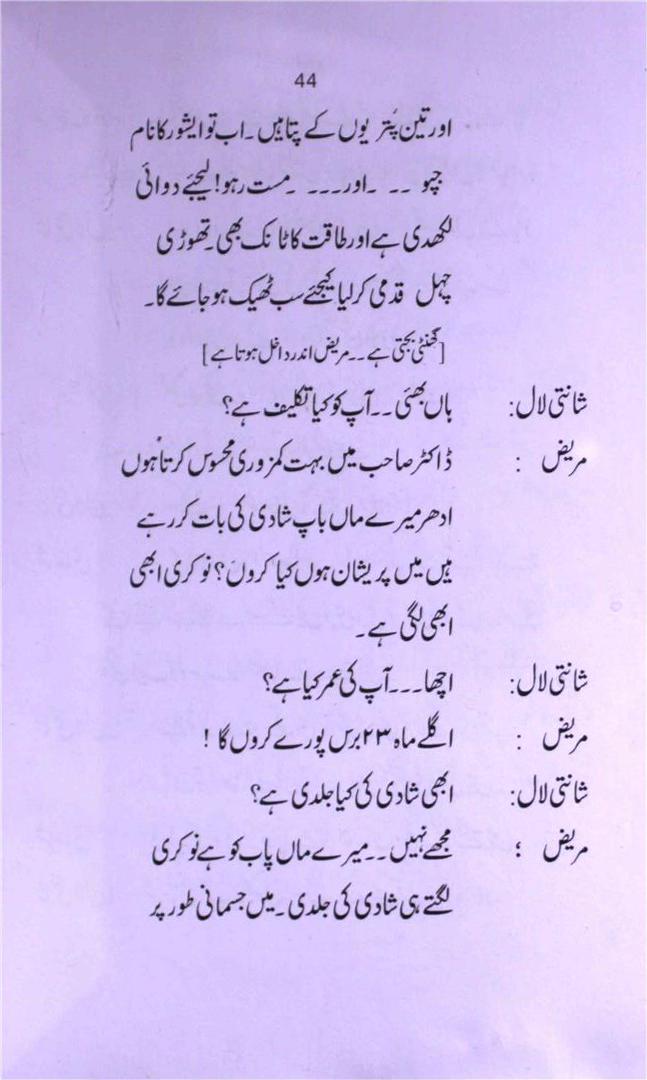 44
اور تین پُتریوں کے پتا ہیں۔ اب تو ایشور کا نام
جپو ۔۔ ۔اور۔۔۔ ۔مست رہو! لیجئے دوائی
لکھدی ہے اور طاقت کا ٹانک بھی۔ تھوڑی
چہل قدمی کر لیا کیجئے سب ٹھیک ہو جائے گا۔
[گھنٹی بجتی ہے۔۔مریض اندر داخل ہوتا ہے]
شانتی لال: ہاں بھئی۔۔آپ کو کیا تکلیف ہے؟
مریض : ڈاکٹر صاحب میں بہت کمزوری محسوس کرتا ہوں
ادھر میرے ماں باپ شادی کی بات کر رہے
ہیں میں پریشان ہوں کیا کروں؟ نوکری ابھی
ابھی لگی ہے۔
شانتی لال: اچھا۔۔۔آپ کی عمر کیا ہے؟
مریض : اگلے ماہ ۲۳ برس پورے کروں گا !
شانتی لال: ابھی شادی کی کیا جلدی ہے؟
مریض ؛ مجھے نہیں۔۔میرے ماں پاب کو ہے نوکری
لگتے ہی شادی کی جلدی۔ میں جسمانی طور پر